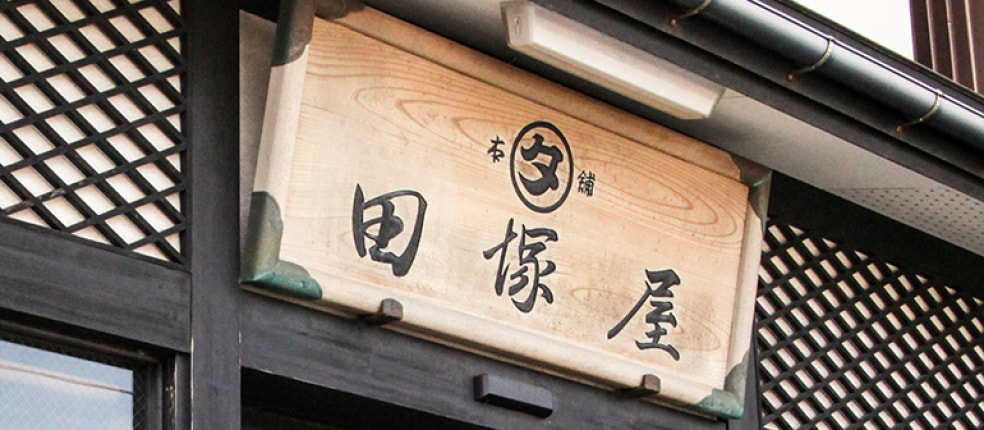 本 タ 舗
田塚屋